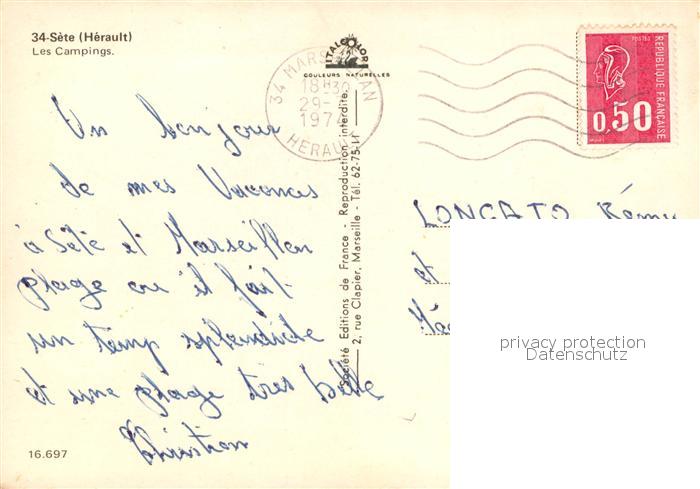 34-Sète (Hérault)
Les Campings.
ITALCOLOR
COULEURS NATURELLES
34 MARSEILLAN
18H30
29-
197
HERAULT
POSTES
REPUBLIQUE FRANÇAISE
0,50
Un bonjour
de mes Vacances
à Sète et Marseillan
plage ou il fait
un temp splendide
et une plage très belle
Christian
Société Editions de France - Reproduction interdite.
2, rue Clapier, Marseille - Tél. 62-75-11
LONGATO Rémy
et
privacy protection
Datenschutz
16.697